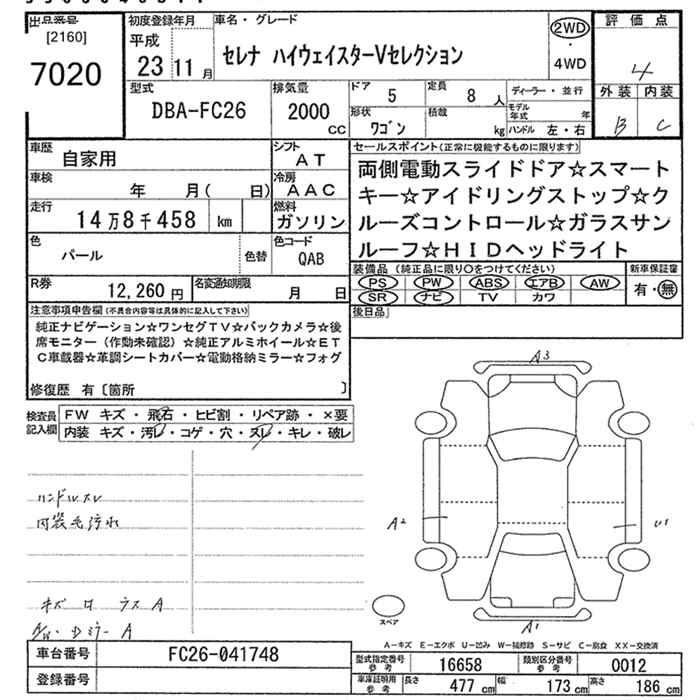 出品番号
[2160]
7020
初度登録年月
平成
23 11 月
車名・グレード
セレナ ハイウェイスターVセレクション
2WD
・
4WD
評価点
4
外装 内装
B C
型式
DBA-FC26
排気量
2000
CC
ドア 5
定員 8 人
ディーラー・並行
形状 ワゴン
積載 kg
モデル年式 年
ハンドル 左・右
車歴 自家用
シフト AT
車検 年 月( 日)
冷房 AAC
走行 14万8千458 km
燃料 ガソリン
色 パール
色替
色コード QAB
R券 12,260 円
名変通知期限 月 日
セールスポイント(正常に機能するものに限ります)
両側電動スライドドア☆スマート
キー☆アイドリングストップ☆ク
ルーズコントロール☆ガラスサン
ルーフ☆HIDヘッドライト
装備品 (純正品に限り○をつけてください)
PS PW ABS エアB AW
SR ナビ TV カワ
新車保証書
有・無
後日品
注意事項申告欄(不具合内容等は具体的に記入して下さい)
純正ナビゲーション☆ワンセグTV☆バックカメラ☆後
席モニター(作動未確認)☆純正アルミホイール☆ET
C車載器☆革調シートカバー☆電動格納ミラー☆フォグ
修復歴 有〔箇所 〕
検査員記入欄
FW キズ・飛石・ヒビ割・リペア跡・×要
内装 キズ・汚レ・コゲ・穴・スレ・キレ・破レ
ハンドルスレ
内装毛汚れ
A3
A2
U1
A1
スペア
A-キズ E-エクボ U-凹み W-補修跡 S-サビ C-腐食 XX-交換済
車台番号 FC26-041748
登録番号
型式指定番号参考 16658
類別区分番号参考 0012
車庫証明用参考 長さ 477 cm 幅 173 cm 高さ 186 cm